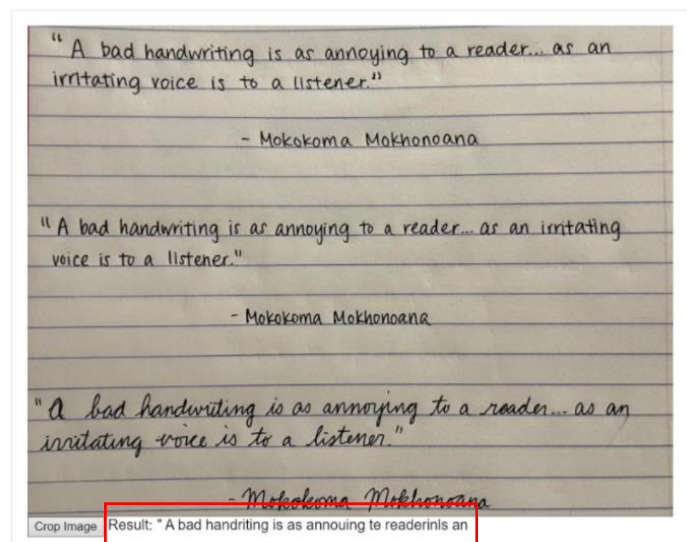 "A bad handwriting is as annoying to a reader... as an
irritating voice is to a listener."
- Mokokoma Mokhonoana
"A bad handwriting is as annoying to a reader... as an irritating
voice is to a listener."
- Mokokoma Mokhonoana
"A bad handwriting is as annoying to a reader... as an
irritating voice is to a listener."
- Mokokoma Mokhonoana
Crop Image Result: " A bad handriting is as annouing te readerinls an